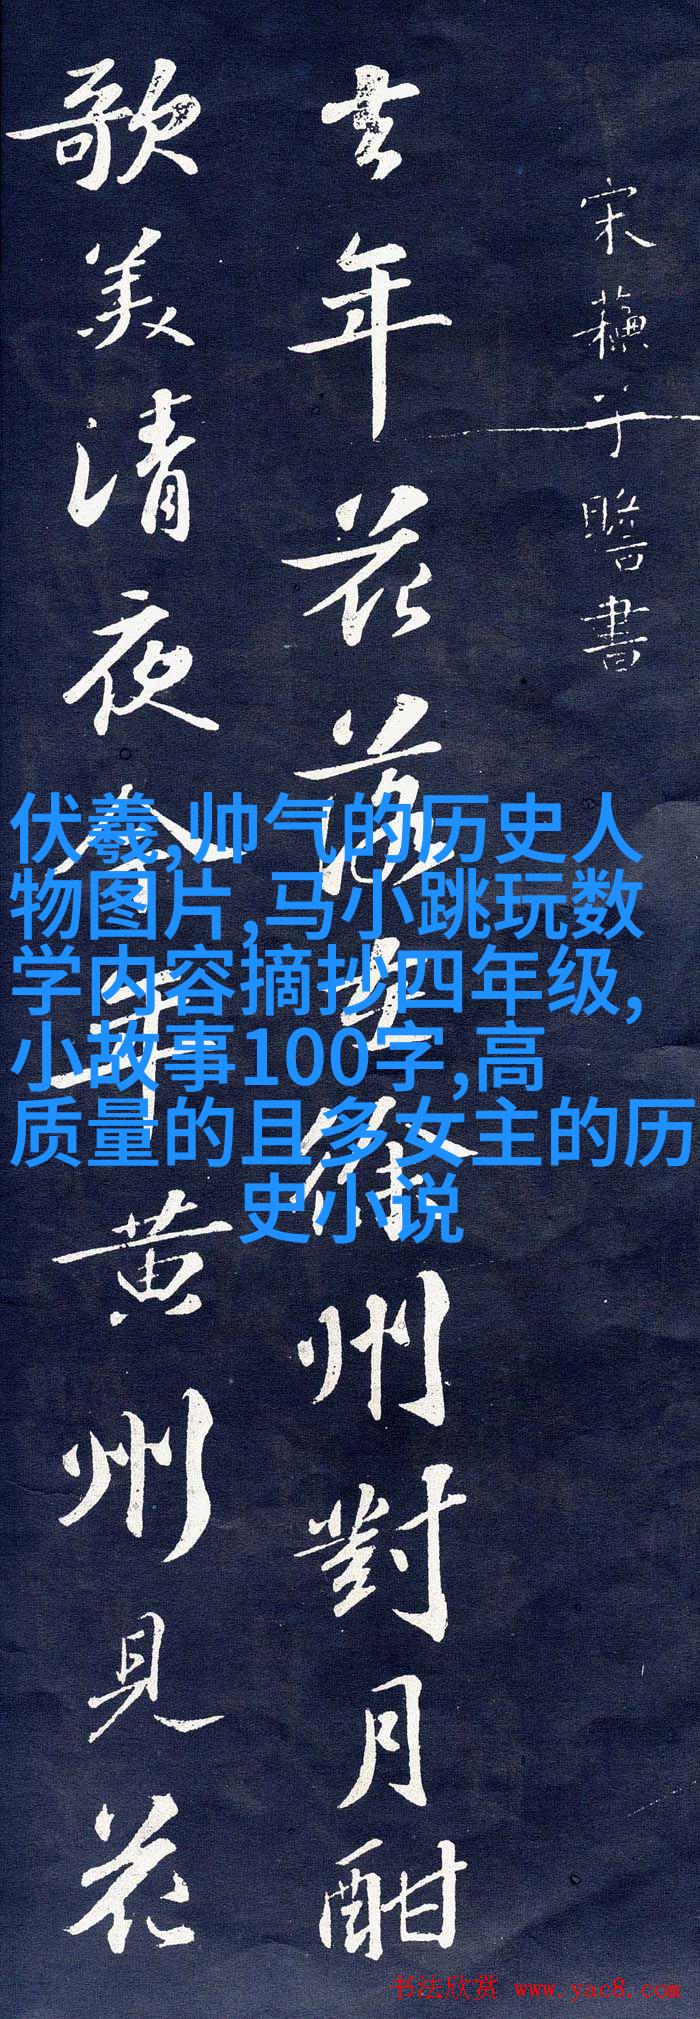 宋蘓子瞻書
去年花落在徐州對月酣
歌美清夜今年黄州見花
伏羲,帅气的历史人
物图片,马小跳玩数
学内容摘抄四年级,
小故事100字,高
质量的且多女主的历
史小说
书法欣赏 www.yac8.com